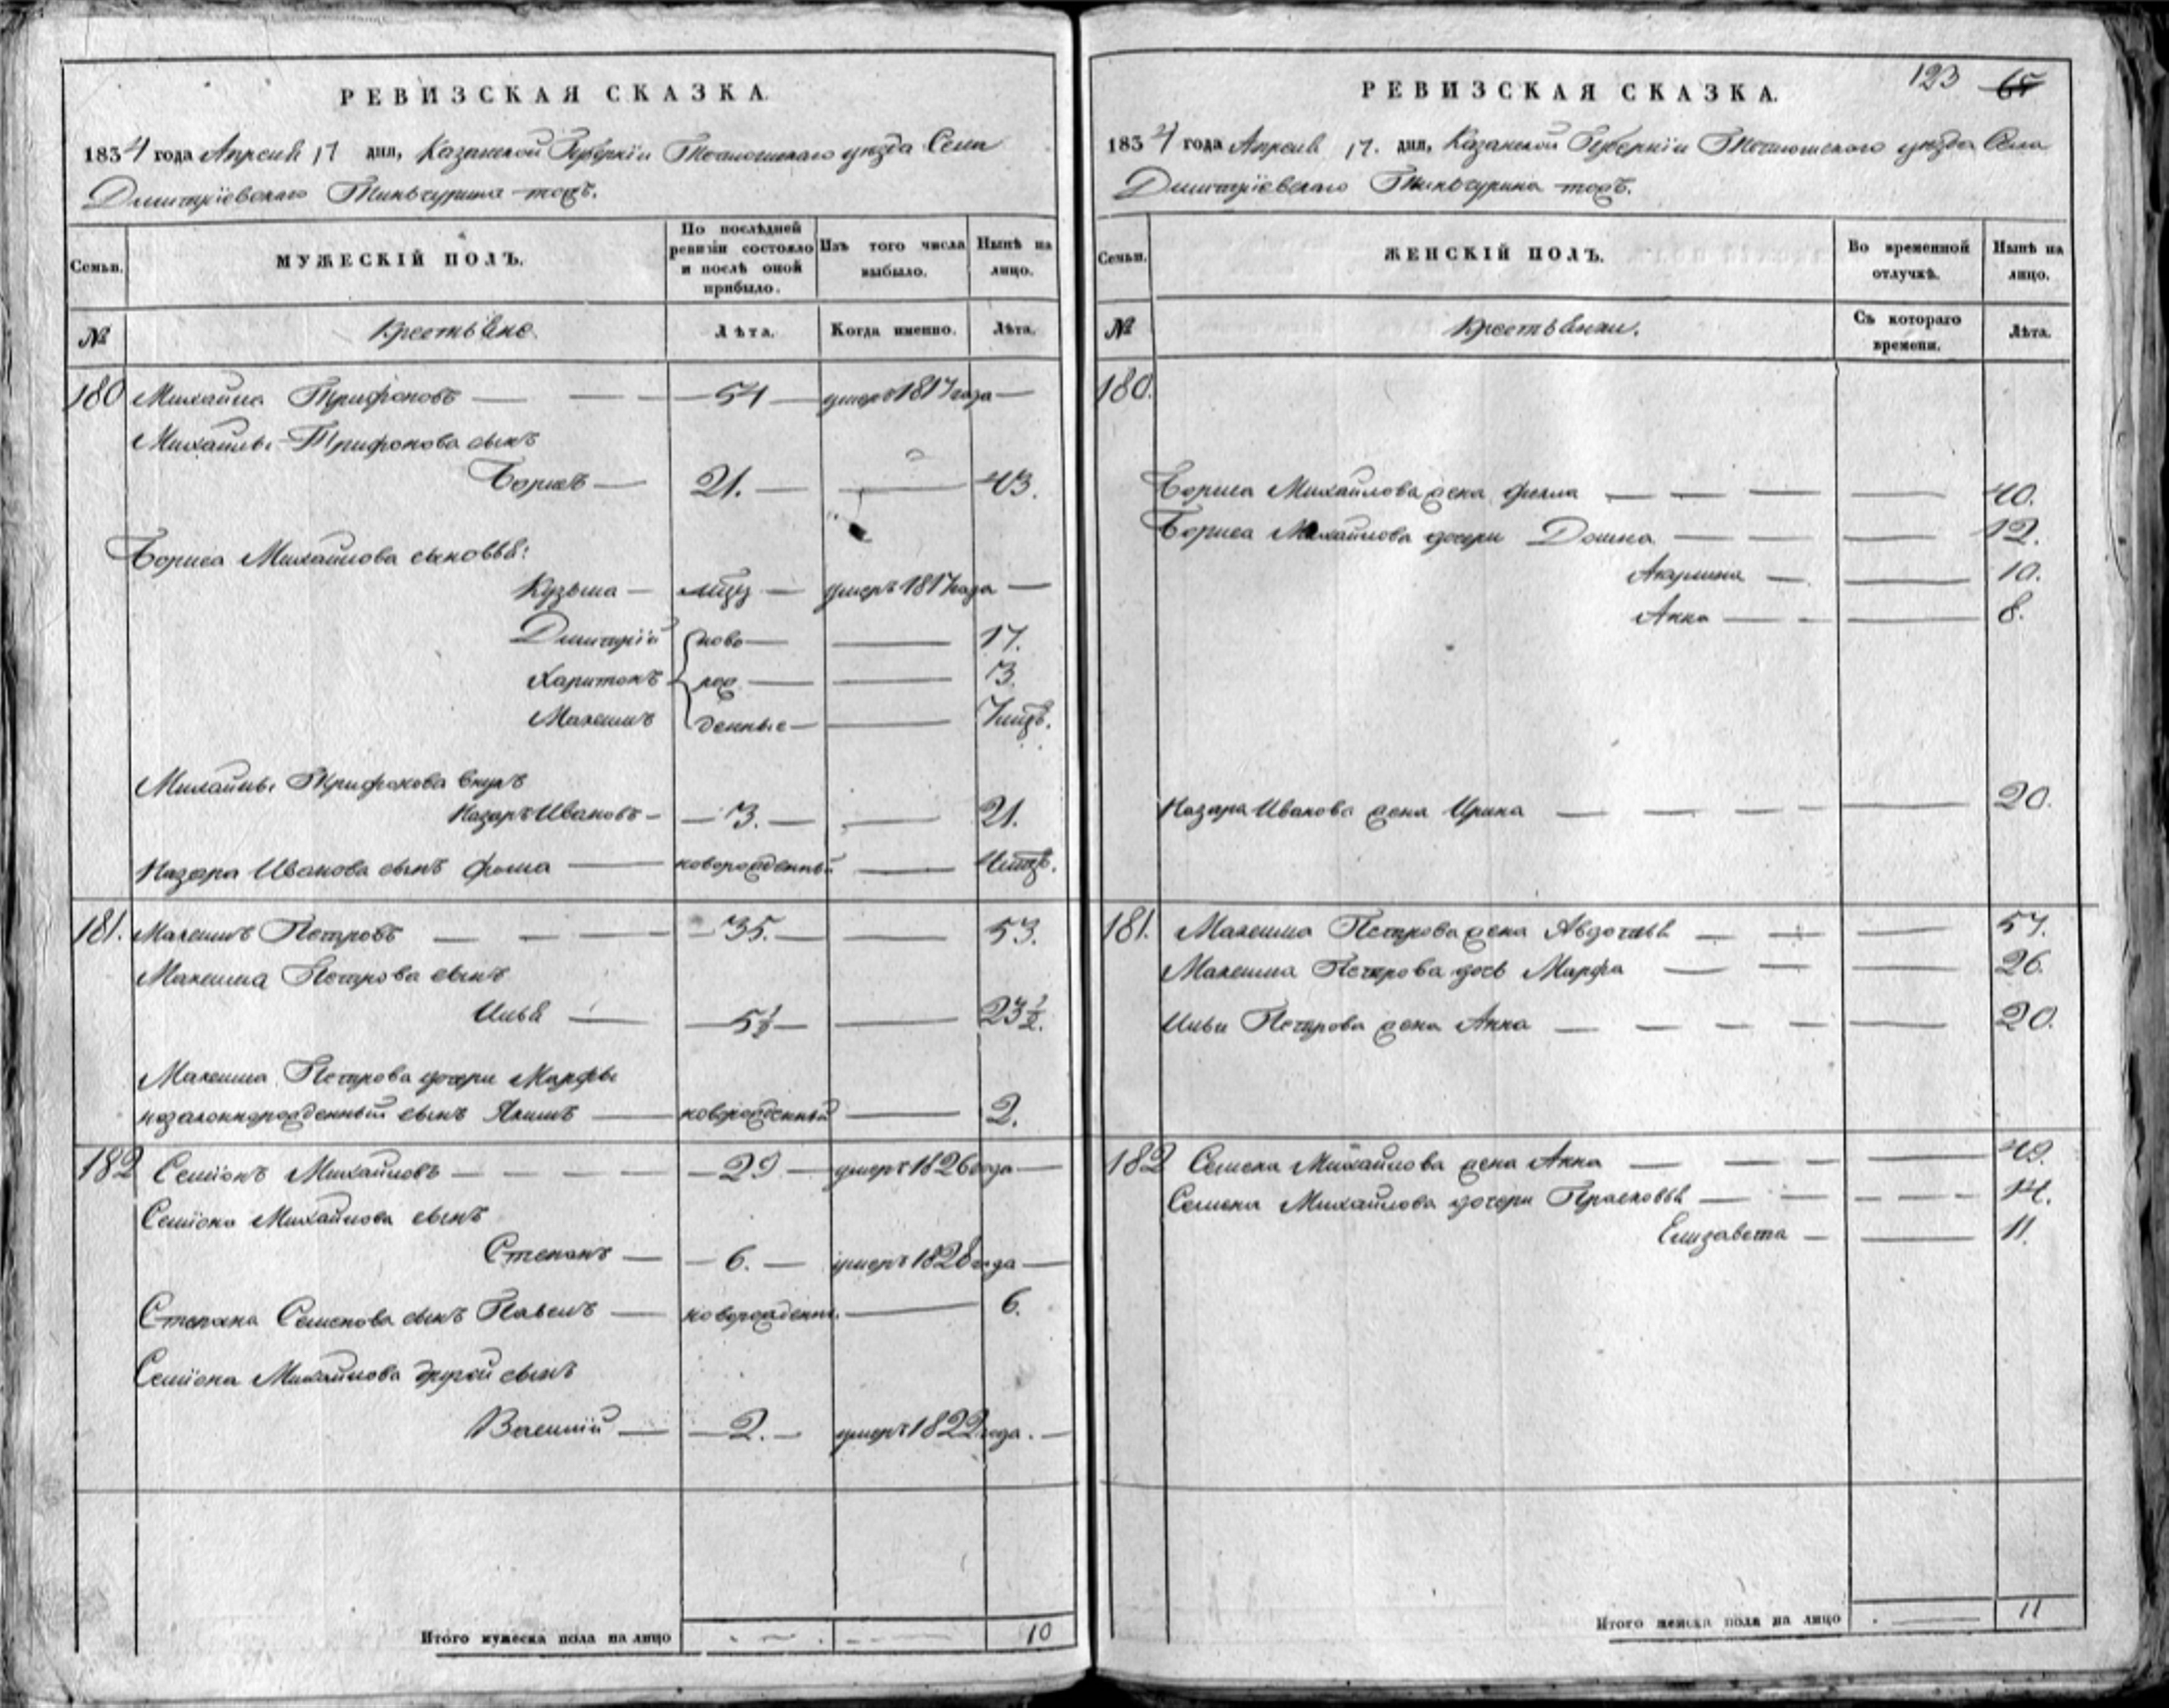 РЕВИЗСКАЯ СКАЗКА.
1834 года Апреля 17 дня, Казанской Губернiи Тетюшскаго уѣзда Села
Дмитрiевскаго Тинчурина тож.
Семьи.
МУЖЕСКIЙ ПОЛЪ.
По послѣдней ревизiи состояло и послѣ оной прибыло.
Изъ того числа выбыло.
Нынѣ на лицо.
№
Крестьяне.
Лѣта.
Когда именно.
Лѣта.
180 Михайла Трифоновъ — 54 — умеръ 1817 года —
Михайлы Трифонова сынъ
Борисъ — 21. — — 43.
Бориса Михайлова сыновья:
Кузьма — — умеръ 1817 года —
Дмитрiй ново — — 17.
Харитонъ рож — — 3.
Максимъ денные — —
Михайлы Трифонова внукъ
Назаръ Ивановъ — — 3. — — 21.
Назара Иванова сынъ Фома — новорожденный —
181. Максимъ Петровъ — 35. — — 53.
Максима Петрова сынъ
Илья — — 5½ — — 23½.
Максима Петрова дочери Марфы
незаконнорожденный сынъ Якимъ — новорожденный — 2.
182 Семiонъ Михайловъ — 29 — умеръ 1826 года —
Семiона Михайлова сынъ
Степанъ — — 6. — умеръ 1828 года —
Степана Семенова сынъ Павелъ — новорожденн. — 6.
Семiона Михайлова другой сынъ
Василiй — — 2. — умеръ 1822 года. —
Итого мужеска пола на лицо — — 10
123 65
РЕВИЗСКАЯ СКАЗКА.
1834 года Апреля 17. дня, Казанской Губернiи Тетюшскаго уѣзда Села
Дмитрiевскаго Тинчурина тож.
Семьи.
ЖЕНСКIЙ ПОЛЪ.
Во временной отлучкѣ.
Нынѣ на лицо.
№
Крестьянки.
Съ котораго времени.
Лѣта.
180.
Бориса Михайлова жена Фекла — — 40.
Бориса Михайлова дочери Домна — — 12.
Акулина — — 10.
Анна — — 8.
Назара Иванова жена Ирина — — 20.
181. Максима Петрова жена Авдотья — — 57.
Максима Петрова дочь Марфа — — 26.
Ильи Петрова жена Анна — — 20.
182 Семена Михайлова жена Анна — — 49.
Семена Михайлова дочери Прасковья — — 14.
Елизавета — — 11.
Итого женска пола на лицо — 11